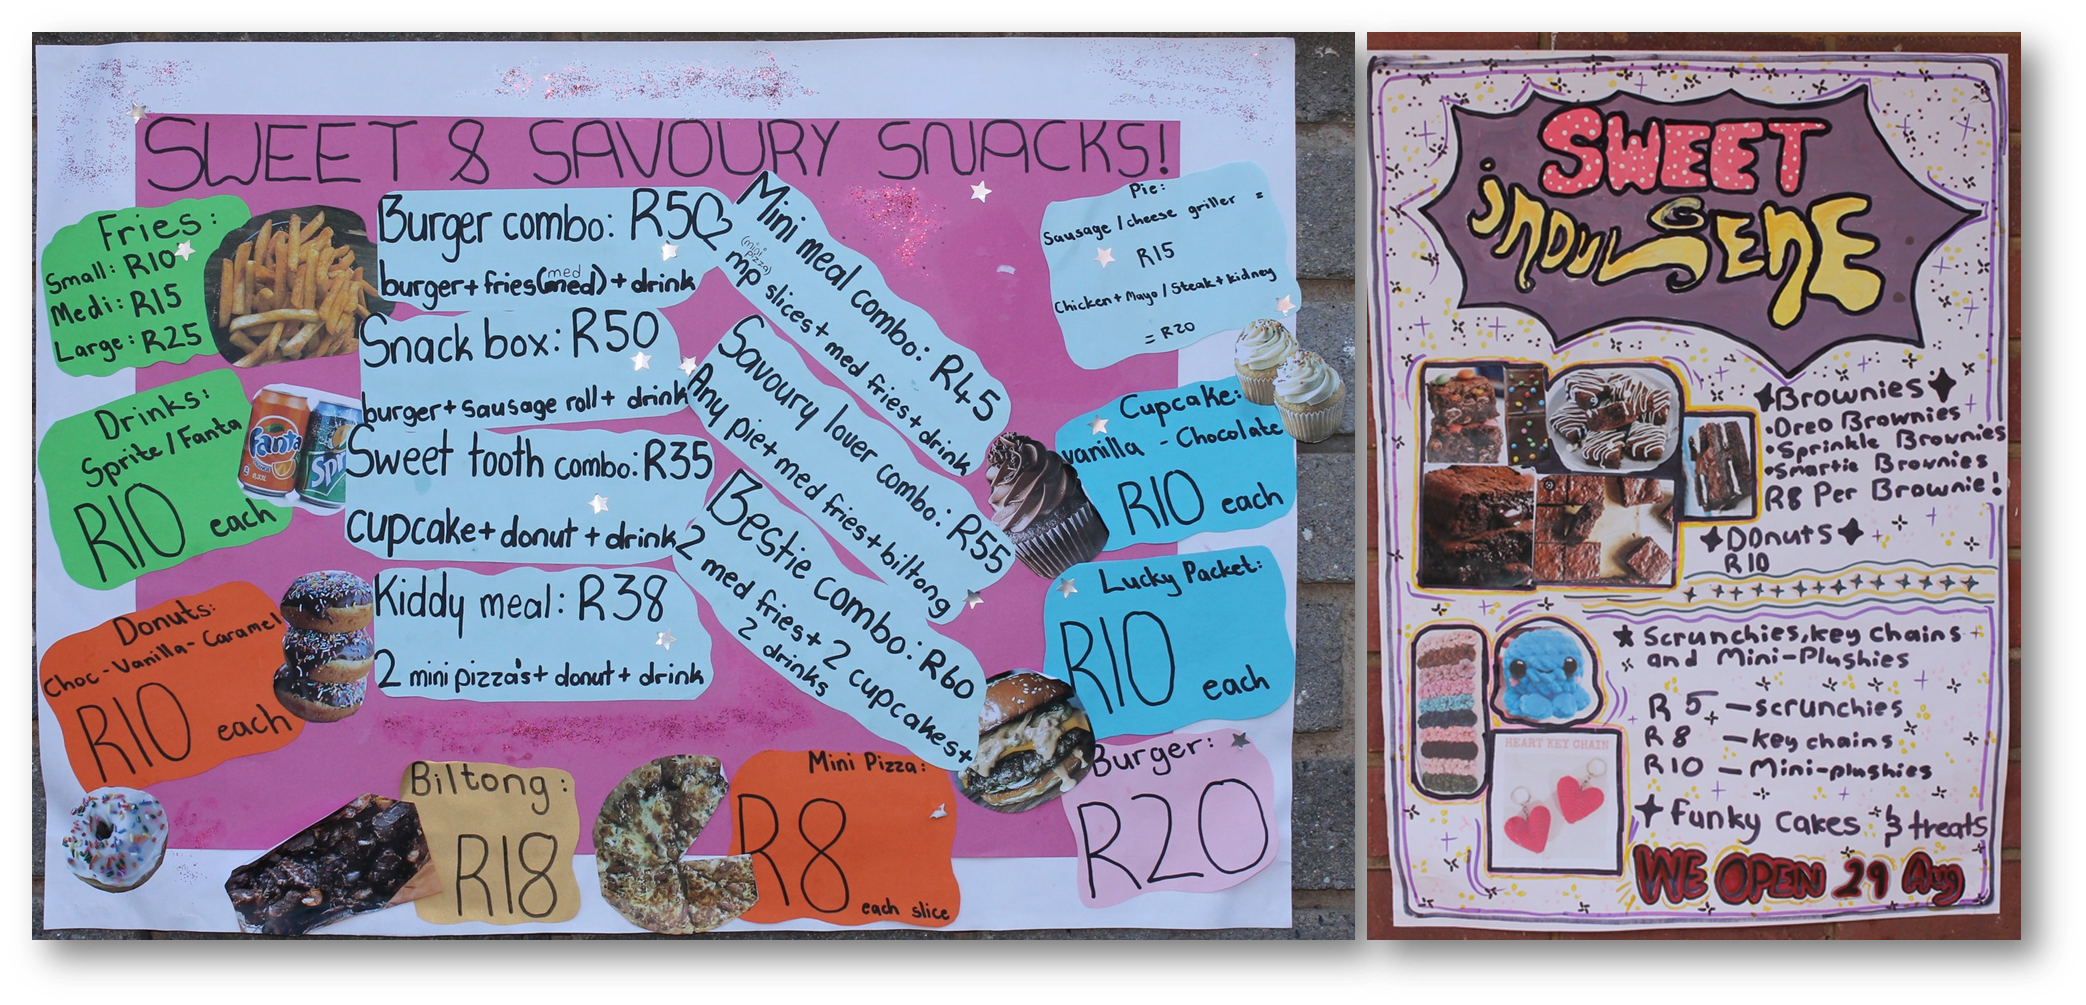 SWEET & SAVOURY SNACKS!
Fries:
Small: R10
Medi: R15
Large: R25
Drinks:
Sprite/Fanta
R10 each
Fanta
Spr
Donuts:
Choc-Vanilla-Caramel
R10 each
Burger combo: R50
burger+fries(med)+drink
med
Snack box: R50
burger+sausage roll+ drink
Sweet tooth combo: R35
cupcake+ donut + drink
Kiddy meal: R38
2 mini pizza's+ donut+ drink
Mini meal combo: R45
(mini pizza)
mp slices+ med fries+drink
Savoury lover combo: R55
Any pie+med fries+biltong
Bestie combo: R60
2 med fries+ 2 cupcakes+
2 drinks
Pie:
Sausage / cheese griller =
R15
Chicken+Mayo / Steak+kidney
= R20
Cupcake:
vanilla - Chocolate
R10 each
Lucky Packet:
R10 each
Biltong:
R18
Mini Pizza:
R8 each slice
Burger:
R20
SWEET
iNDULGENE
Brownies
•Oreo Brownies
•Sprinkle Brownies
•Smartie Brownies
R8 Per Brownie!
Donuts
R10
Scrunchies,key chains
and Mini-Plushies
R 5 —scrunchies
R 8 —key chains
R10 —Mini-plushies
HEART KEY CHAIN
Funky cakes & treats
WE OPEN 29 Aug